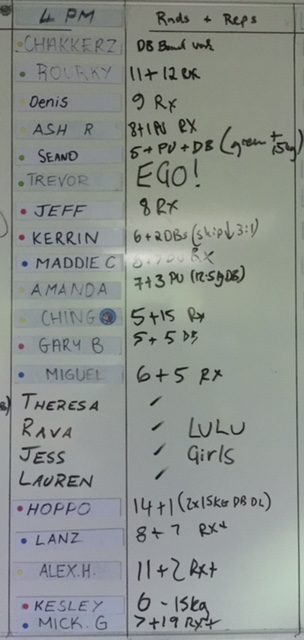 4 PM Rnds + Reps
CHAKKERZ DB
BOURKY 11+12 RX
Denis 9 Rx
ASH R 8+1PU RX
SEANO 5+PU+DB (green + 15kg)
TREVOR EGO!
JEFF 8 RX
KERRIN 6+2DBs (skip↓ 3:1)
MADDIE C RX
AMANDA 7+3 PU (12.5kg DB)
CHING 5+15 Rx
GARY B 5+5 DB
MIGUEL 6+5 RX
THERESA ✓
RAVA ✓ LULU
JESS ✓ Girls
LAUREN ✓
HOPPO 14+1 (2x15KG DB DL)
LANZ 8+7 RX+
ALEX.H. 11+2 Rx+
KESLEY 6 - 15kg
MICK. G 7+19 RX+